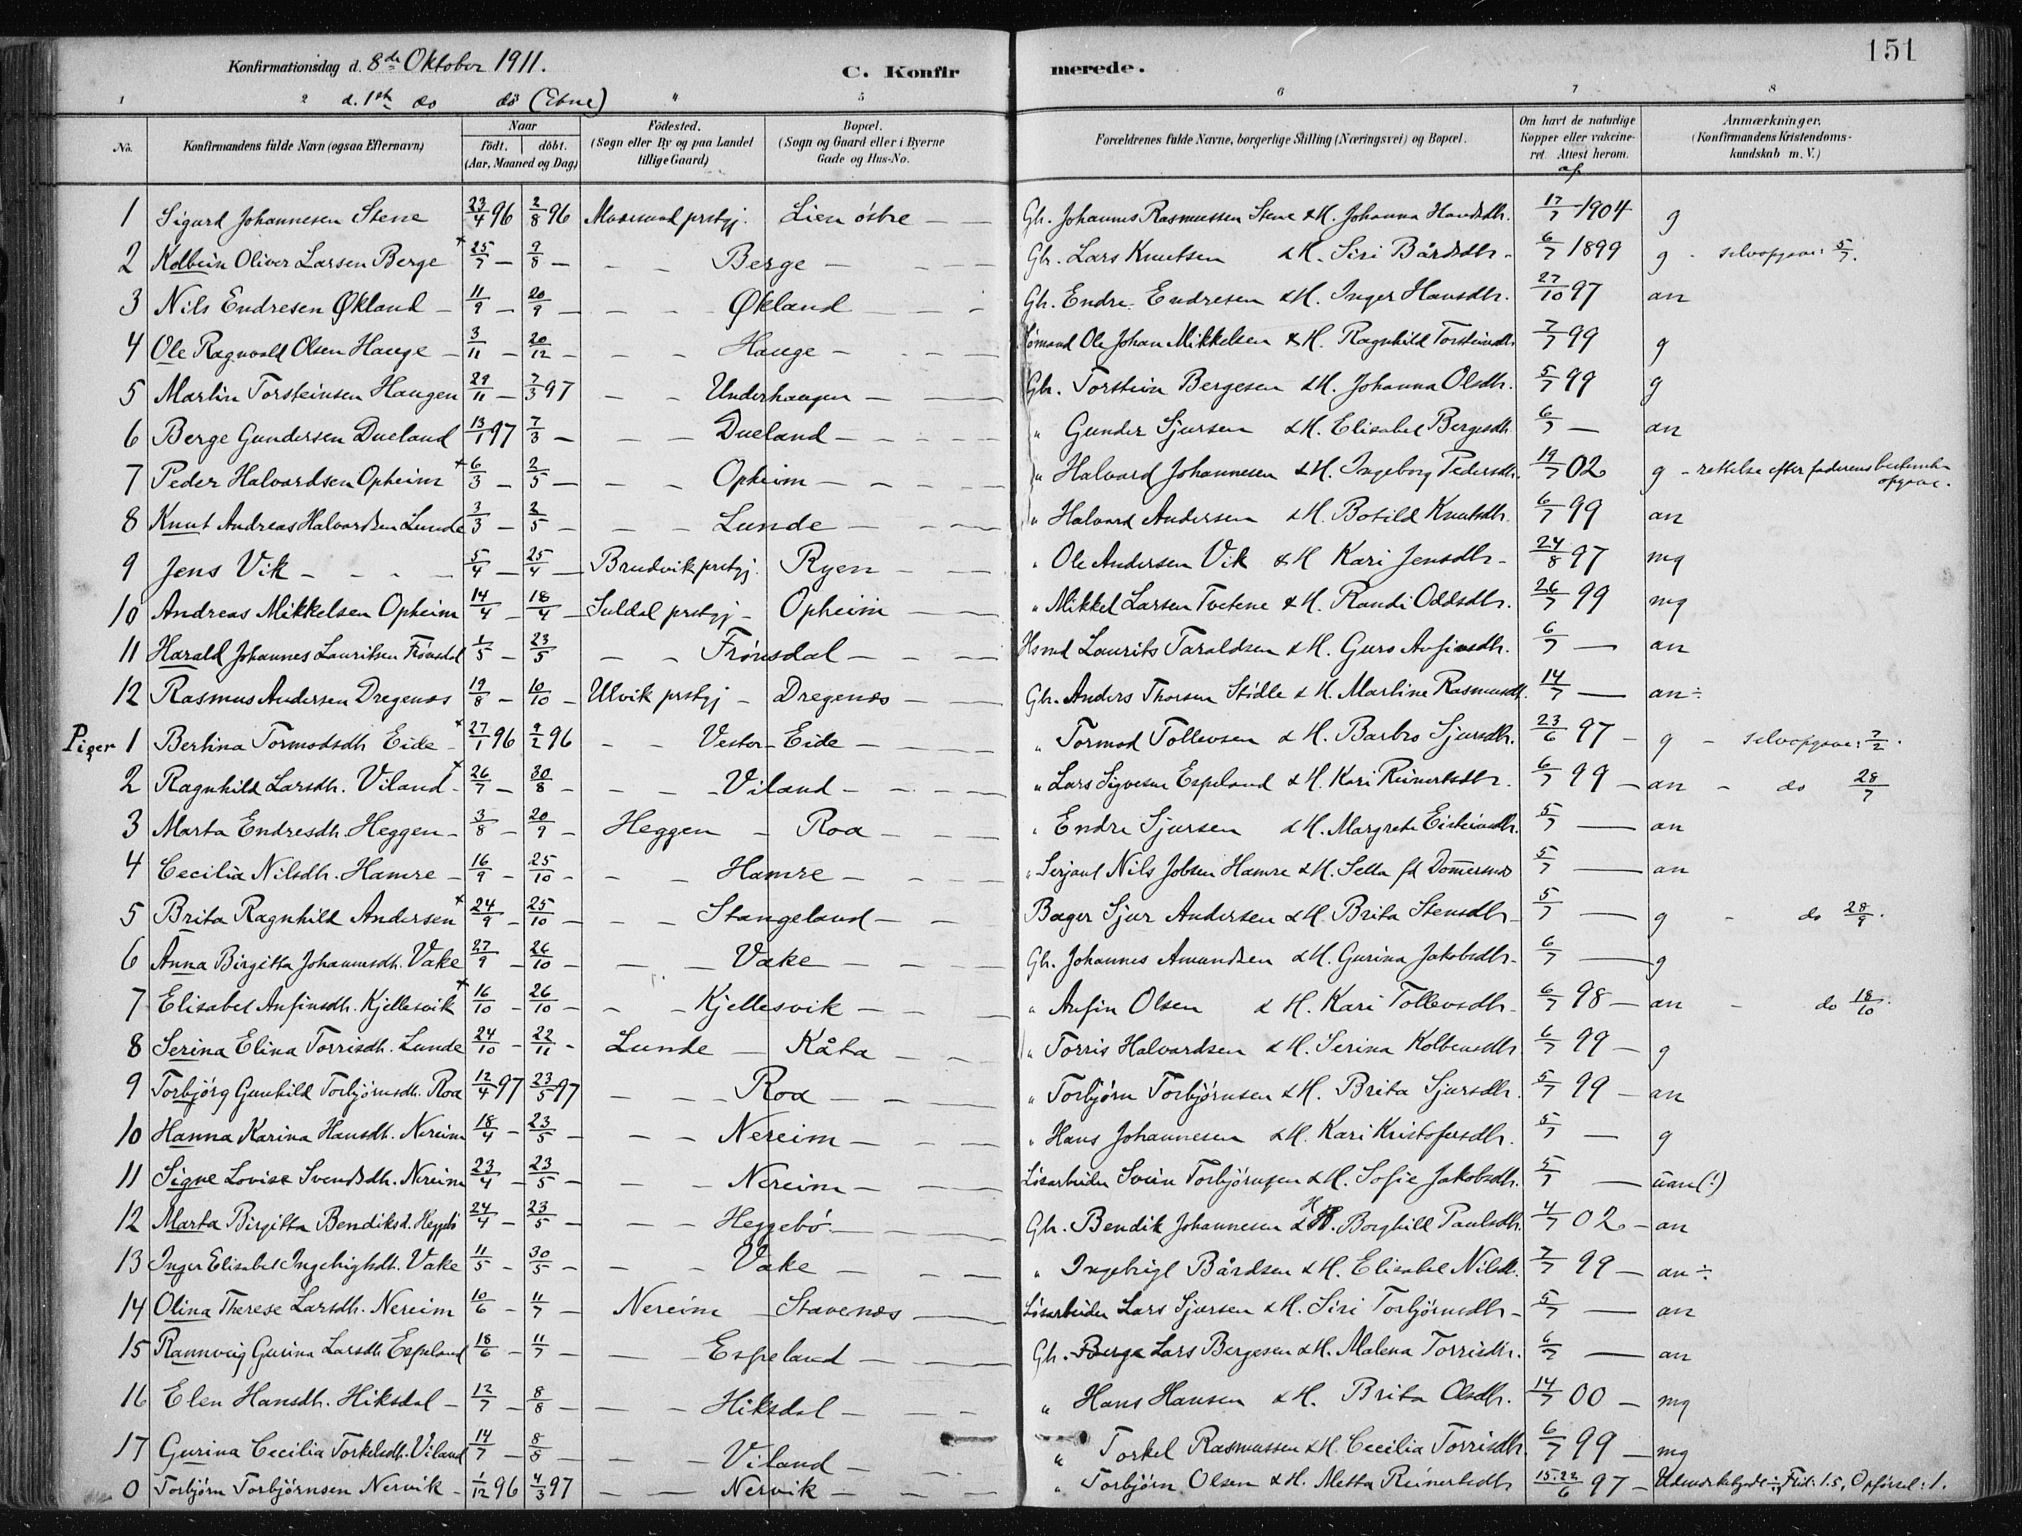 Konfirmationsdag d. 8de Oktober 1911.
C. Konfirmerede.
151
1 2 d. 1st do do (Etne) " 5 6 7 8
No.
Konfirmandens fulde Navn (ogsaa Efternavn)
Naar
födt. döbt.
(Aar, Maaned og Dag)
Födested.
(Sogn eller By og paa Landet
tillige Gaard)
Bopæl.
(Sogn og Gaard eller i Byerne
Gade og Hus-No.
Forældrenes fulde Navne, borgerlige Stilling (Næringsvei) og Bopæl.
Om havt de naturlige
Kopper eller vakcine-
ret. Attest herom.
af
Anmærkninger.
(Konfirmandens Kristendoms-
kundskab m. V.)
1 Sigurd Johannesen Stene 23/4 96 2/8 96 prstgj. Lien östre — — Gbr. Johannes Rasmussen Stene & H. Johanna Hansdtr. 17/7 1904 g
2 Kolbein Oliver Larsen Berge × 25/7 — 9/8 — — — Berge — — — Gbr. Lars Knutsen & H. Siri Bårdsdtr. 6/7 1899 g - selvopgave: 5/7.
3 Nils Endresen Økland — 11/9 — 20/9 — — — Økland — — — Gbr. Endre Endresen & H. Inger Hansdtr. 27/10 97 an
4 Ole Ragnvald Olsen Hauge — 3/11 — 20/12 — — — Hauge — — — Sømand Ole Johan Mikkelsen & H. Ragnhild Torsteinsdtr. 7/7 99 g
5 Martin Torsteinsen Haugen 29/11 — 7/3 97 — — Underhaugen — — Gbr. Torstein Bergesen & H. Johanna Olsdtr. 5/7 99 g
6 Berge Gundersen Dueland 13/1 97 7/3 — — — Dueland — — — " Gunder Sjursen & H. Elisabet Bergesdtr 6/7 — an
7 Peder Halvardsen Opheim × 6/3 — 2/5 — — — Opheim — — — " Halvard Johannesen & H. Ingeborg Pedersdtr. 19/7 02 g - rettelse efter faderens bestemte opgave.
8 Knut Andreas Halvardsen Lunde 3/3 — 2/5 — — — Lunde — — — " Halvard Andersen & H. Botild Knutsdtr. 6/7 99 an
9 Jens Vik — — — 5/4 — 25/4 — Brudvik prstgj. Ryen — — " Ole Andersen Vik & H Kari Jensdtr — 24/8 97 mg
10 Andreas Mikkelsen Opheim 14/4 — 18/4 — Suldal prstgj — Opheim — — " Mikkel Larsen Tvetene & H. Randi Oddsdtr. 26/7 99 mg
11 Harald Johannes Lauritsen Frönsdal 1/5 — 23/5 — — Frönsdal — — — Hsmd Laurits Taraldsen & H. Guro Anfinsdtr. 6/7 — an
12 Rasmus Andersen Dregenæs 19/8 — 10/10 — Ulvik prstgj — Dregenæs — — Gbr. Anders Thorsen Stödle & H. Martine Rasmusdtr. 14/7 — an÷
Piger 1 Bertina Tormodsdtr Eide × 27/1 96 9/2 96 — — Vestor-Eide — — " Tormod Tollevsen & H. Barbro Sjursdtr. 23/6 97 — g — selvopgave: 7/2.
2 Ragnhild Larsdtr. Viland × 26/7 — 30/8 — — — Viland — — — " Lars Sigvesen Espeland & H. Kari Reinertsdtr. 6/7 99 — an — do 28/7
3 Marta Endresdtr. Heggen — 3/8 — 20/9 — Heggen — Roa — — " Endre Sjursen & H. Margrete Eisteinsdtr. 5/7 — an
4 Cecilia Nilsdtr. Hamre — 16/9 — 25/10 — — — Hamre — — — " Serjant Nils Jobsen Hamre & H. Setta fd 5/7 — an
5 Brita Ragnhild Andersen × 24/9 — 25/10 — — — Stangeland — — Bager Sjur Andersen & H. Brita Stensdtr — 5/7 — g — do 28/9.
6 Anna Birgitta Johannesdtr. Vake 27/9 — 26/10 — — — Vake — — — Gbr. Johannes Amundsen & H. Gurina Jakobsdtr — 6/7 — g
7 Elisabet Anfinsdtr. Kjellesvik × 16/10 — 26/10 — — — Kjellesvik — — — " Anfin Olsen & H. Kari Tollevsdtr — 6/7 98 — an — do 18/10.
8 Serina Elina Torrisdtr. Lunde 24/10 — 22/11 — Lunde — Kåta — — " Torris Halvardsen & H. Serina Kolbensdtr. 6/7 99 — g
9 Torbjörg Gunhild Torbjörnsdtr. Roa 12/4 97 23/5 97 — — Roa — — — " Torbjörn Torbjörnsen & H. Brita Sjursdtr. 5/7 99 — an
10 Hanna Karina Hansdtr. Nereim 18/4 — 23/5 — — — Nereim — — — " Hans Johannesen & H. Kari Kristofersdtr. 5/7 — g
11 Signe Lovise Svendsdtr. Nereim 23/4 — 23/5 — — — Nereim — — — Lösarbeider Svein Torbjörnsen & H. Sofie Jakobsdtr. 5/7 — uan(!)
12 Marta Birgitta Bendiksd. Heggebö 24/4 — 23/5 — — — Heggebö — — — Gbr. Bendik Johannesen & H. Borghild Paulsdtr. 4/7 02 — an
13 Inger Elisabet Ingebrigtsdtr. Vake 11/5 — 30/5 — — — Vake — — — " Ingebrigt Bårdsen & H. Elisabet Nilsdtr. 7/7 99 — an÷
14 Olina Therese Larsdtr. Nereim 10/6 — 11/7 — Nereim — Stavenæs — Lösarbeider Lars Sjursen & H. Siri Torbjörnsdtr — 5/7 — an
15 Rannveig Gurina Larsdtr Espeland 18/6 — 11/7 — — — Espeland — — — Gbr. Berge Lars Bergesen & H. Malena Torrisdtr. 6/7 — an
16 Elen Hansdtr. Hiksdal — 12/7 — 8/8 — — — Hiksdal — — — " Hans Hansen & H. Brita Olsdtr. 14/7 00 — mg
17 Gurina Cecilia Torkelsdtr. Viland 14/7 — 8/8 — — — Viland — — " Torkel Rasmussen & H. Cecilia Torrisdtr. 6/7 99 — mg
0 Torbjörn Torbjörnsen Nervik — 1/12 96 4/3 97 — — Nervik — — — " Torbjörn Olsen & H. Metta Reinertsdtr 15.22/6 97 — Flid: 1.5, Opförsel: 1.